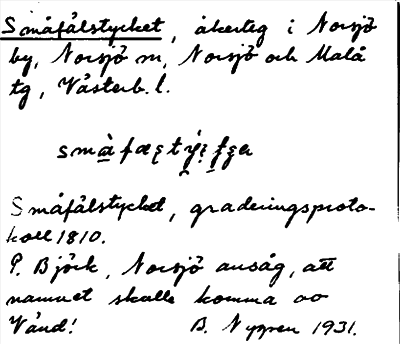 Småfålstycket, åkerteg i Norsjö
by, Norsjö sn, Norsjö och Malå
tg, Västerb. l.
Småfålstycket, graderingsproto-
koll 1810.
P. Björk, Norsjö ansåg, att
namnet skulle komma av
Vänd! B. Nygren 1931.